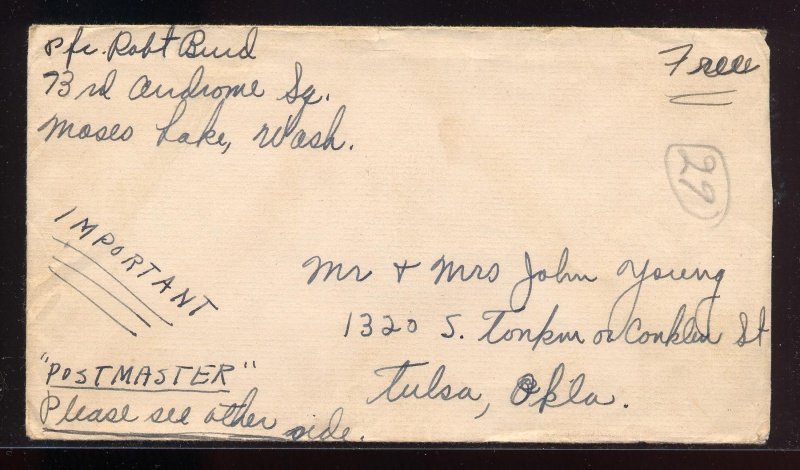 Pfc. Robt Burd
73rd Airdrome Sq.
Moses Lake, Wash.
Free
29
IMPORTANT
Mr + Mrs John Young
1320 S. or Conklin St
Tulsa, Okla.
"POSTMASTER"
Please see other side.